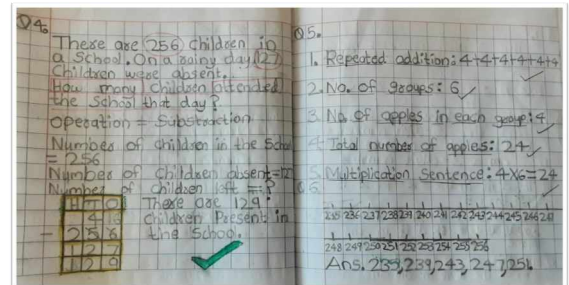 Q4.
There are 256 children in
a School. On a rainy day 127
Children were absent.
How many Children attended
the School that day?
Operation = Substraction
Number of children in the School
= 256
Number of Children absent=127
Number of children left = ?
H T O There are 129
4 16 Children Present in
- 2 5 6 the School.
1 2 7
1 2 9
Q5.
1. Repeated addition: 4+4+4+4+4+4
2. No. of groups: 6
3. No. of apples in each group: 4
4. Total number of apples: 24
5. Multiplication Sentence: 4×6=24
235 236 237 238 239 240 241 242 243 244 245 246 247
248 249 250 251 252 253 254 255 256
Ans. 235, 239, 243, 247, 251